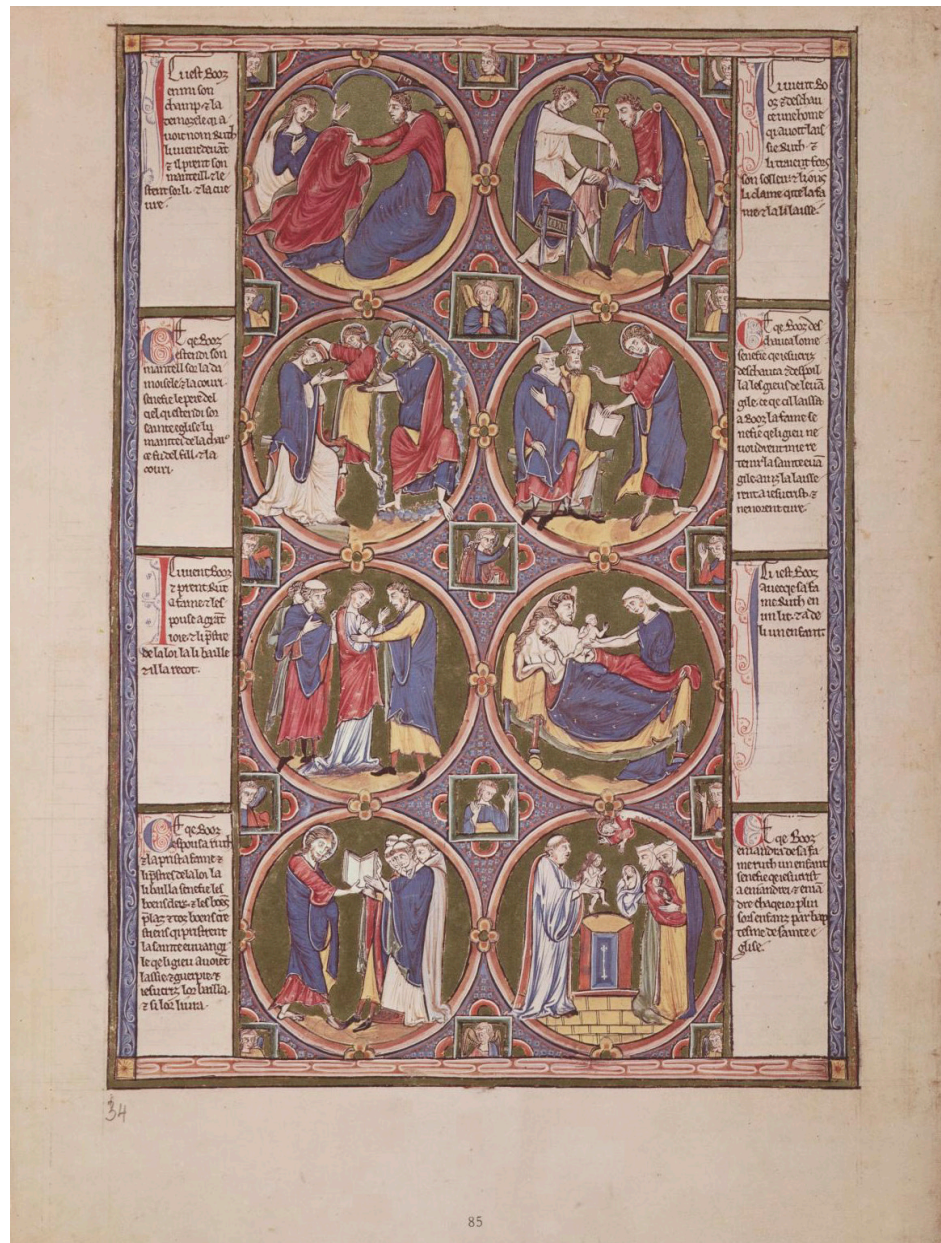 Ci est Booz
en mi son
champ ⁊ la
damoisele qi a
voit nom Ruth
li vient devãt
⁊ il prent son
mantell ⁊ le
stent sor li ⁊ la cue
vre.
Ce qe Booz
estendi son
mantell sor la da
moisele ⁊ la couri
senefie le pere del
qel qi estendi sor
sainte eglise lu
mantel de la char
ce fu del fill ⁊ la
couri.
Ci vient Booz
⁊ prent Rut
a fame ⁊ les
pouse a grãt
ioie ⁊ li p̃stre
de la loi la li baille
⁊ il la recot.
Ce qe Booz
espousa ruth
⁊ la prist a fame ⁊
li p̃stres de la loi la
li bailla senefie les
boens clers ⁊ les boẽs
⁊ toz boens cre
stiens qi pristrent
la sainte euvangi
le qe li gieu avoiẽt
laissie ⁊ guerpie ⁊
iesucriz lor bailla
⁊ si lor livra.
Ci vient Bo
oz ⁊ deschau
ce un home
qi avoit lais
sie Ruth ⁊
li traient fors
son soller ⁊ li ons
li claime qite la fa
me ⁊ la li laisse.
Ce qe Booz des
chauca lome
senefie qe iesucriz
deschauca ⁊ despoil
la les gieus de leuã
gile. ce qe cil laissa
a Booz la fame se
nefie qe li gieu ne
voudrent mie re
tenir la sainte euã
gile ainz la laisse
rent a iesucrist ⁊
nen orent cure.
Ci est Booz
avecqe sa fa
me Ruth en
un lit ⁊ a de
li un enfant
Ce qe Booz
eniandra de sa fa
me ruth un enfant
senefie qe iesucrist
a eniandrei ⁊ eniã
dre chaqe ior plu
sors enfanz par bap
tesme de sainte e
glise.
34
85